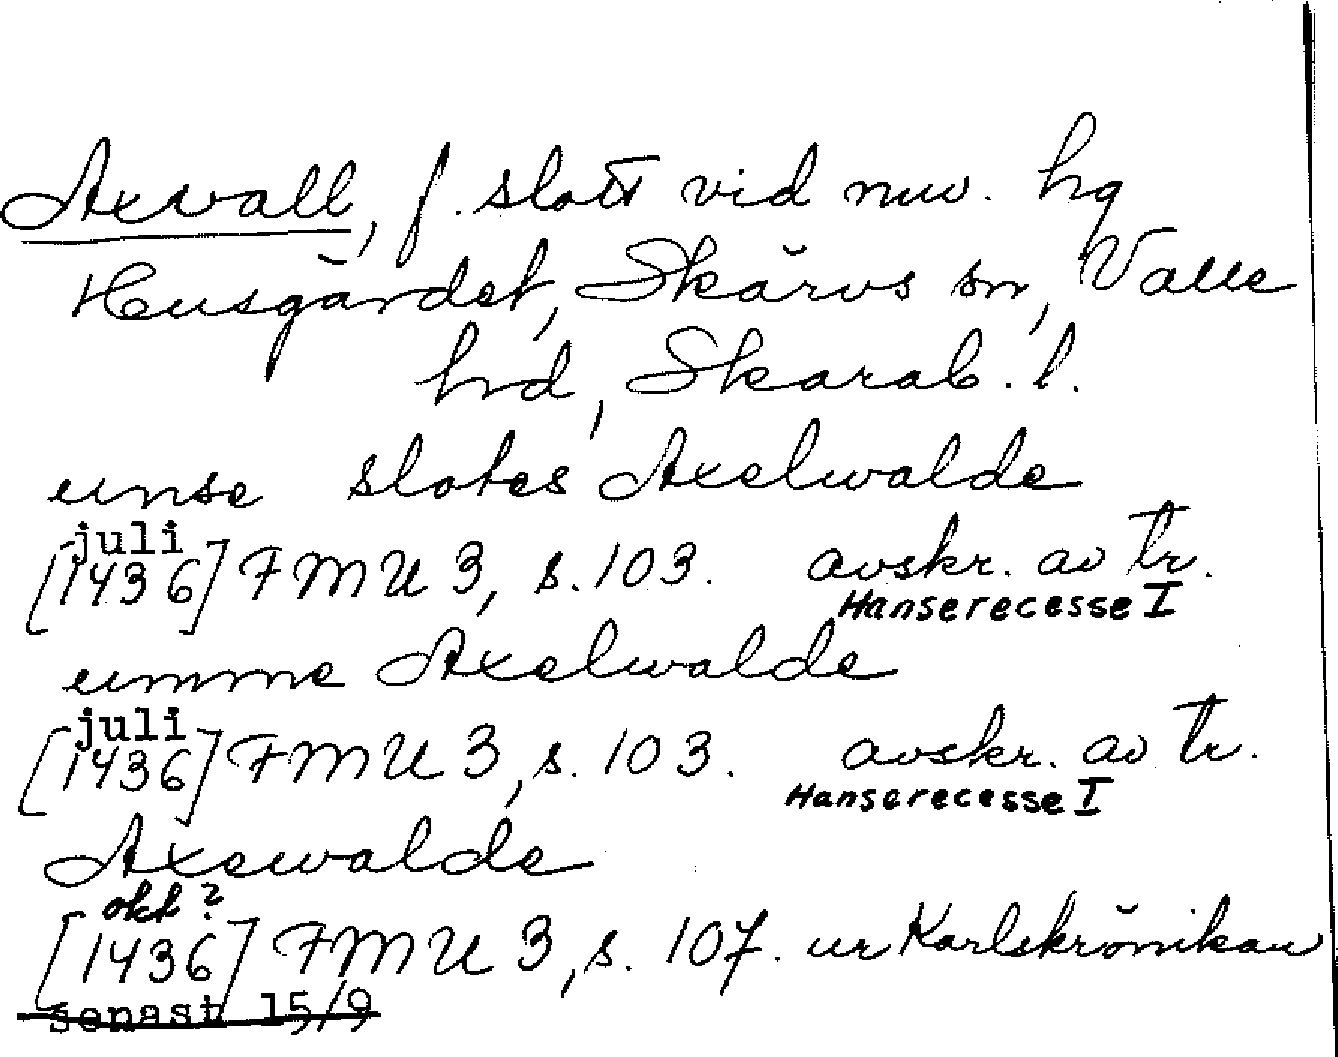 Axvall, f. slott vid nuv. hg
Husgärdet, Skärvs sn, Valle
hd, Skarab. l.
umse slotes Axelwalde
juli
[1436] FMU 3, s. 103. avskr. av tr.
Hanserecesse I
umme Axelwalde
juli
[1436] FMU 3, s. 103. avskr. av tr.
Hanserecesse I
Axewalde
okt?
[1436] FMU 3, s. 107. ur Karlskrönikan
senast 15/9